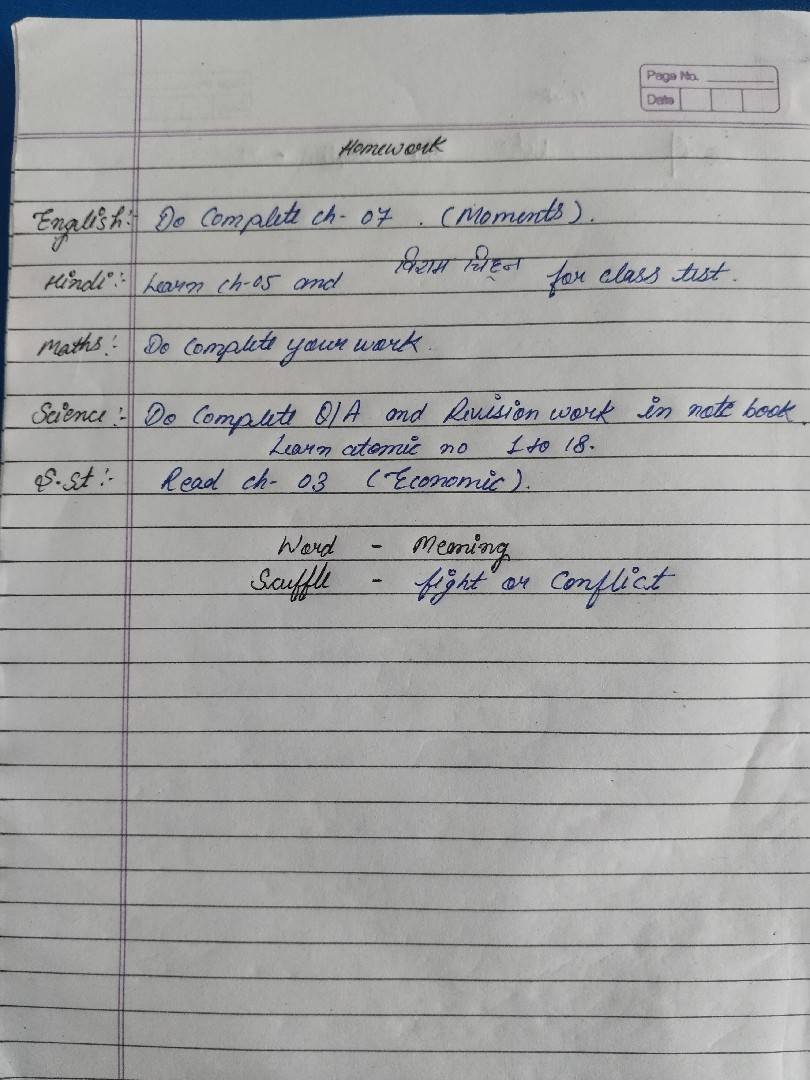 Page No.
Date
Homework
English:- Do Complete ch- 07 . (Moments).
Hindi:- Learn ch-05 and विराम चिह्न for class test.
Maths:- Do Complete your work.
Science:- Do Complete Q/A and Revision work in note book.
Learn atomic no 1 to 18.
S.St:- Read ch- 03 (Economic).
Word - Meaning
Scuffle - fight or Conflict